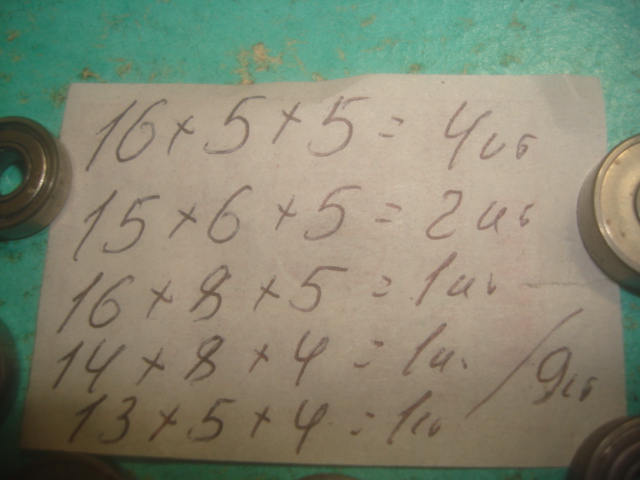 16 × 5 × 5 = 4шт
15 × 6 × 5 = 2шт
16 × 8 × 5 = 1шт
14 × 8 × 4 = 1шт / 9шт
13 × 5 × 4 = 1шт